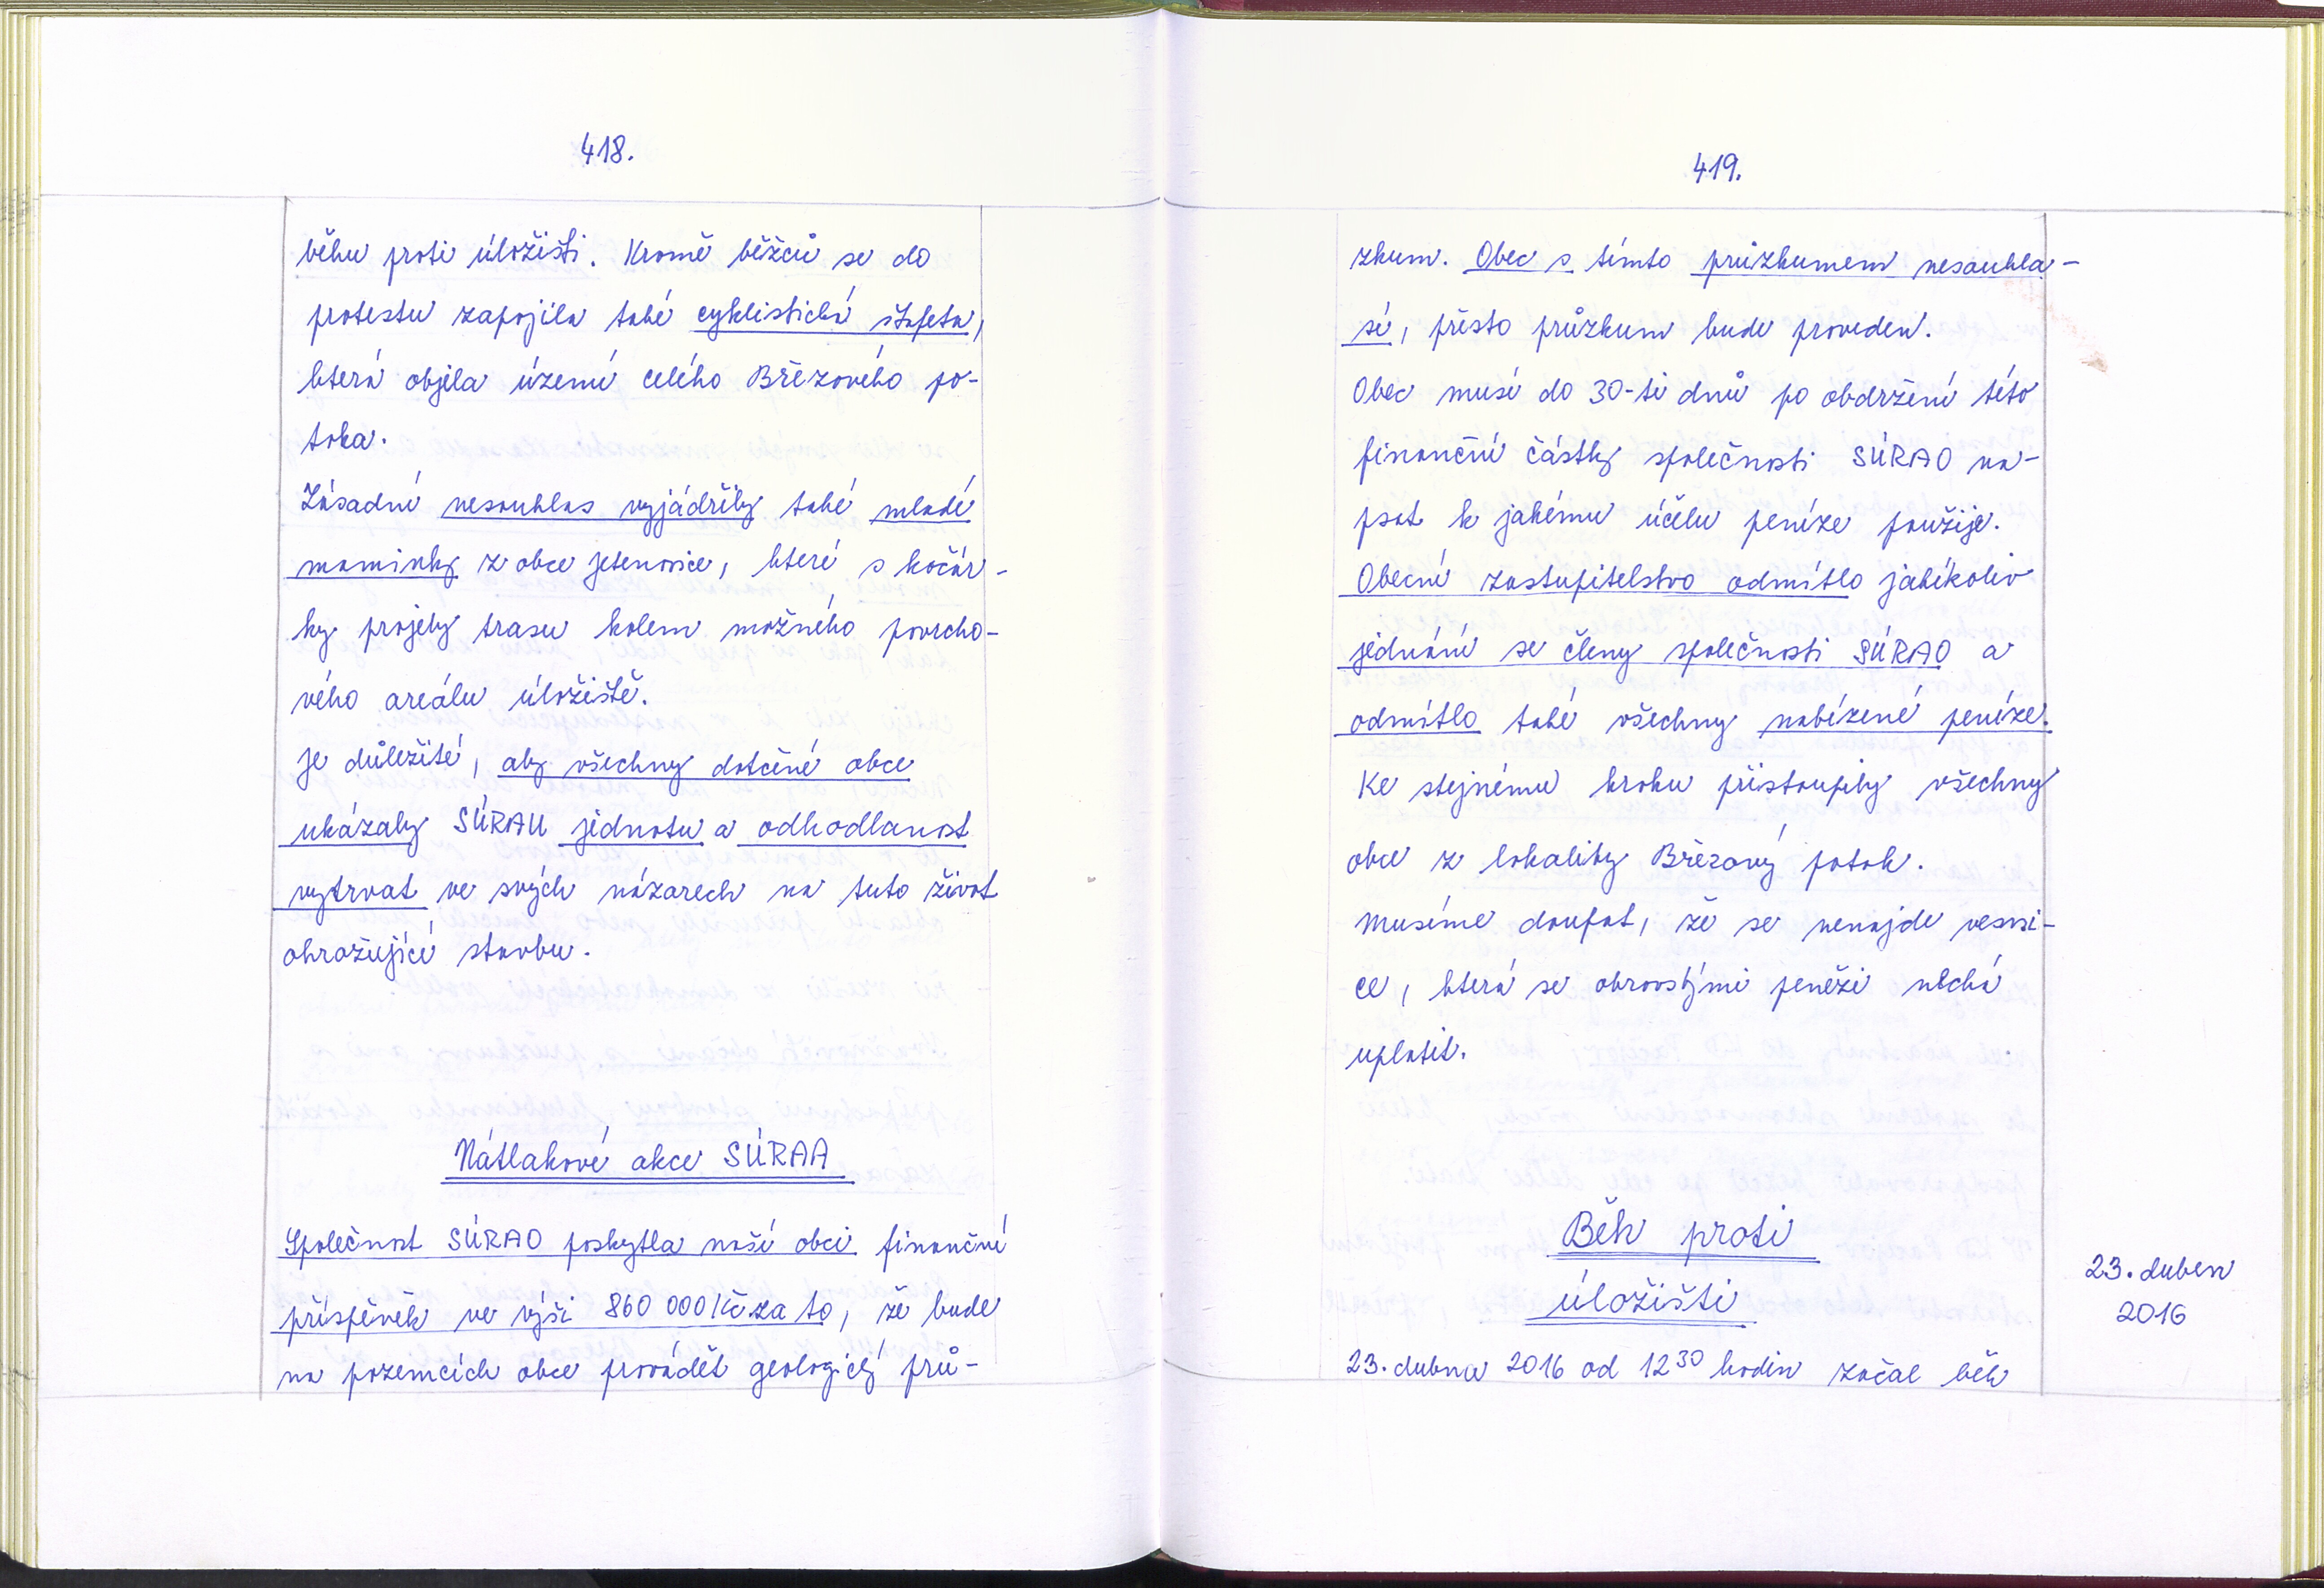 418.
běhu proti úložišti. Kromě běžců se do
protestu zapojila také cyklistická štafeta,
která objela území celého Březového po-
toka.
Zásadní nesouhlas vyjádřily také mladé
maminky z obce Jetenovice, které s kočár-
ky projely trasu kolem možného povrcho-
vého areálu úložiště.
Je důležité, aby všechny dotčené obce
ukázaly SÚRAU jednotu a odhodlanost
vytrvat ve svých názorech na tuto život
ohrožující stavbu.
Nátlakové akce SÚRAA
Společnost SÚRAO poskytla naší obci finanční
příspěvek ve výši 860 000 Kč za to, že bude
na pozemcích obce provádět geologický prů-
419.
zkum. Obec s tímto průzkumem nesouhla-
sí, přesto průzkum bude proveden.
Obec musí do 30-ti dnů po obdržení této
finanční částky společnosti SÚRAO na-
psat k jakému účelu peníze použije.
Obecné zastupitelstvo odmítlo jakékoliv
jednání se členy společnosti SÚRAO a
odmítlo také všechny nabízené peníze.
Ke stejnému kroku přistoupily všechny
obce z lokality Březový potok.
Musíme doufat, že se nenajde vesni-
ce, která se obrovskými penězi nechá
uplatit.
Běh proti
úložišti
23. duben
2016
23. dubna 2016 od 12³⁰ hodin začal běh